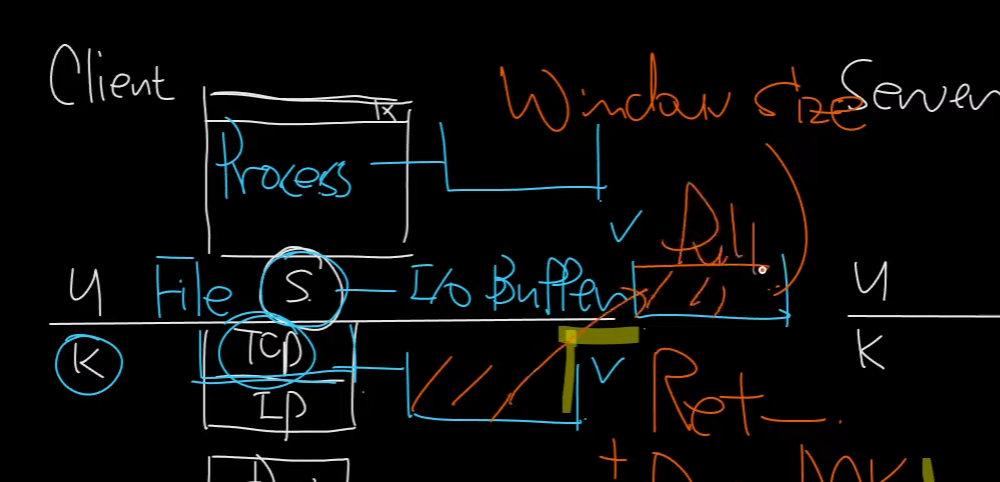 Client
Window size
Server
TX
Process
Full
U
File
S
I/O Buffer
U
K
TCP
K
IP
Ret
+